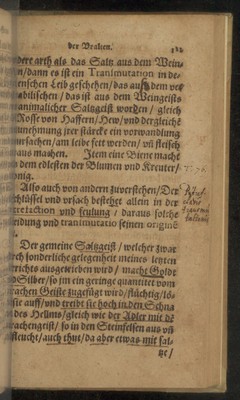 der Uralten.
dere arth als das Saltz aus dem Wein-
en/dann es ist ein Transmutation in de-
enschen Leib geschehen/das aus dem ve-
tabilischen/das ist aus dem Weingeists
animalicher Saltzgeist worden/gleich
Rosse von Haffern/Hew/und dergleiche
nehmung jrer stärcke ein vorwandlung
ursachen/am leibe fett werden/vñ fleisch
aus machen. Item eine Biene macht
dem edlesten der Blumen und Kreuter/
onig.
Also auch von andern zuverstehen/Der
chlüssel und ursach bestehet allein in der
trefaction und feulung/daraus solche
eidung und tranmutatio seinen origine
Der gemeine Saltzgeist/welcher zwar
rch sonderliche gelegenheit meines letzten
richts ausgetrieben wird/macht Goldt
nd Silber/so im ein geringe quantitet vom
rachen Geiste zugefügt wird/flüchtig/lö-
sie auff/und treibt sie hoch in den Schna
des Helms/gleich wie der Adler mit de
rachengeist/so in den Steinfelsen aus vñ
fleucht/auch thut/da aber etwas mit sal-
tze/